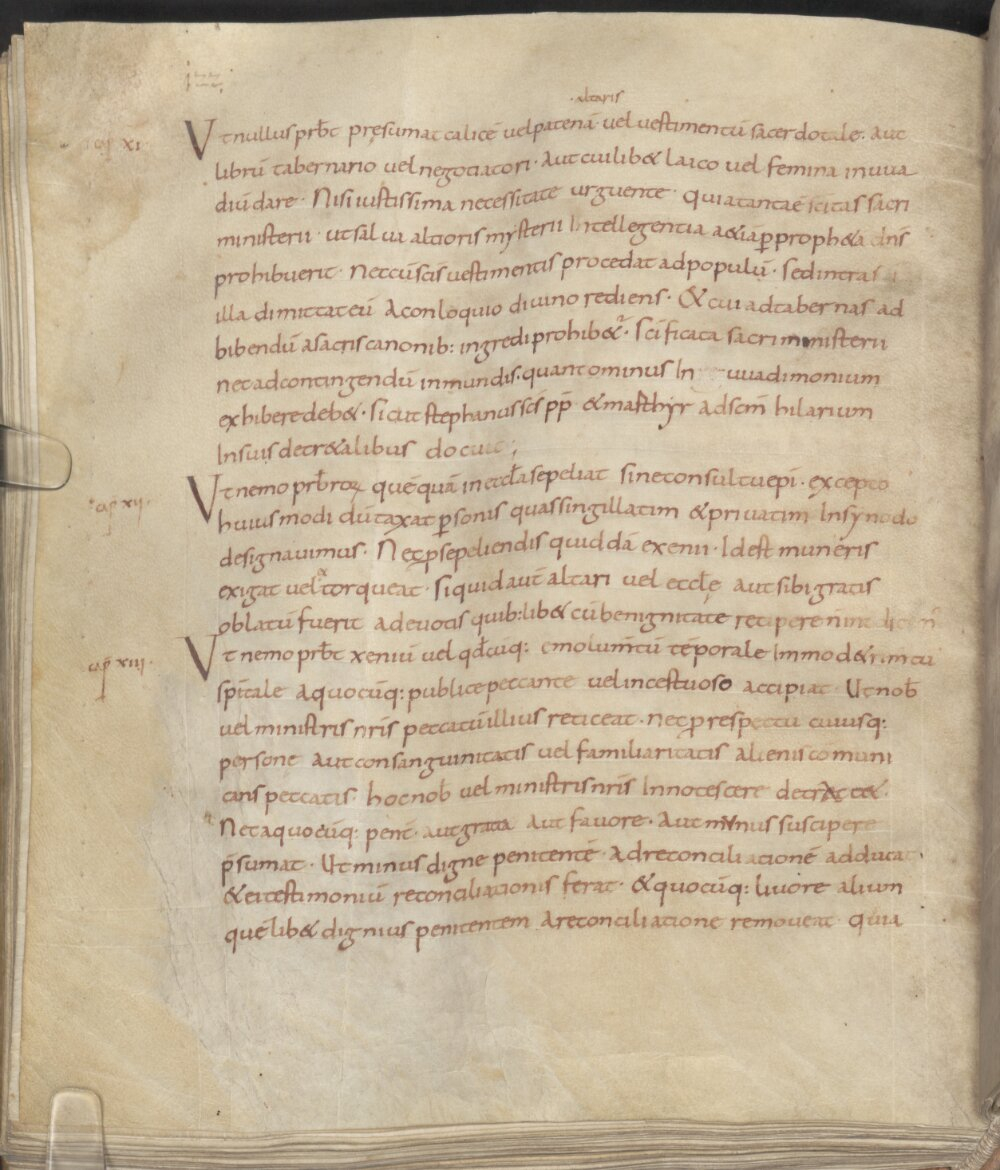 altaris
cap XI Vt nullus prƀt presumat calicē vel patenā vel vestimentū sacerdotale · aut
librū tabernario vel negotiatori · Aut cuilib& laico vel femina in uua
diū dare · Nisi iustissima necessitate urguente · Quia tantae sc̄itas sacri
ministerii · ut salva altioris mysterii Intellegentia a&iā ꝑ proph&a dn̄s
prohibuerit · Nec cū sc̄is vestimentis procedat ad populū · sed intra
illa dimittat eū A conloquio divino rediens · & cui ad tabernas ad
bibendū a sacris canonib: ingredi prohib&ur · sc̄ificata sacri ministerii
nec ad contingendū inmundis · quanto minus In uuadimonium
exhibere deb& · sicut stephanus sc̄s pp̄ & mafthyr ad scm̄ hilarium
In suis decr&alibus docuit ;
cap̄ XII · Vt nemo prƀrorꝝ quēquā in eccƚa sepeliat sine consultu ep̄i · excepto
huiusmodi dūtaxat ꝑsonis quas singillatim & privatim In synodo
designavimus · Nec ꝓ sepeliendis quiddā exenii · Id est muneris
exigat vel extorqueat · siquid aut̄ altari vel eccƚę aut sibi gratis
oblatū fuerit A devotis quib:lib& cū benignitate recipere n̄
cap̄ XIII · Vt nemo prƀt xeniū vel qd̄cūq: emolum̄tū tēporale Immo d&rim̄tū
spītale A quocūq: publice peccante vel incestuoso accipiat · Ut noƀ
vel ministris nr̄is peccatū illius reticeat · nec ꝓ respectu cuiusq:
persone aut consanguinitatis vel familiaritatis alienis comuni
cans peccatis · hoc noƀ vel ministris nr̄is Innotescere detrecte& ·
Nec a quocūq: penit̄ · aut gratia Aut favore · Aut munus suscipere
p̄sumat · Ut minus digne penitentē · Ad reconciliationē adducat ·
& ei testimoniū reconciliationis ferat · & quocūq: livore alium
quēlib& dignius penitentem A reconciliatione removeat · quia